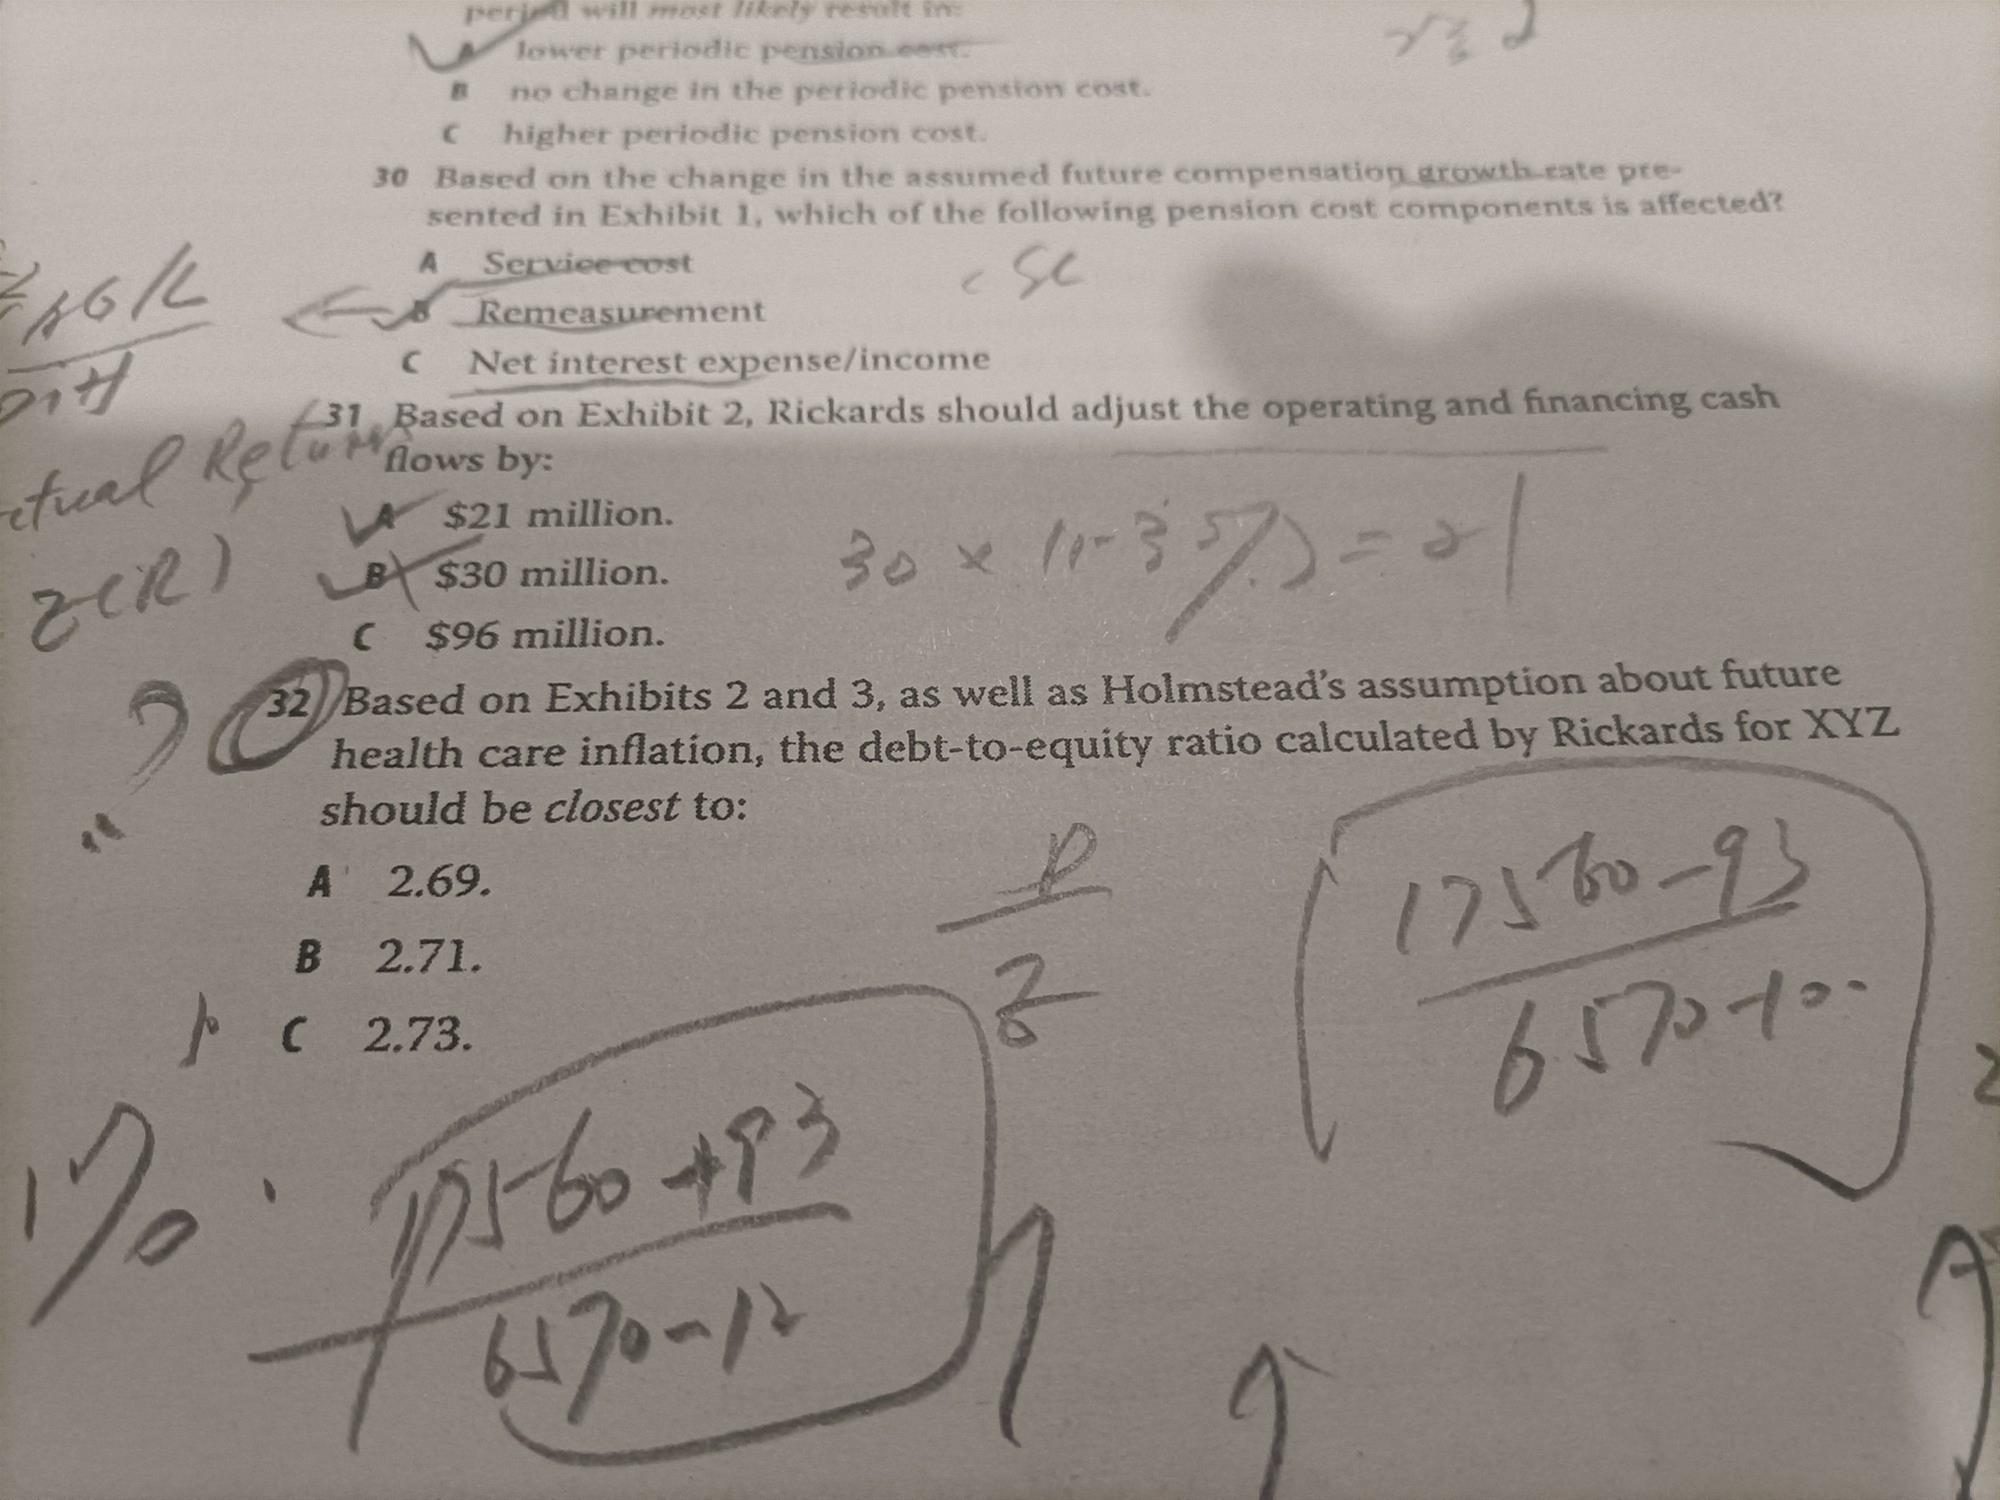 period will most likely result in:
A lower periodic pension cost.
B no change in the periodic pension cost.
C higher periodic pension cost.
30 Based on the change in the assumed future compensation growth rate pre-
sented in Exhibit 1, which of the following pension cost components is affected?
A Service cost
SC
B Remeasurement
C Net interest expense/income
31 Based on Exhibit 2, Rickards should adjust the operating and financing cash
flows by:
ctual Return
A $21 million.
B $30 million.
30 × (1-35%) = 21
E(R)
C $96 million.
32 Based on Exhibits 2 and 3, as well as Holmstead's assumption about future
health care inflation, the debt-to-equity ratio calculated by Rickards for XYZ
should be closest to:
A 2.69.
B 2.71.
C 2.73.
D
E
17560-93
6570+100
1%
17560+93
6570-12